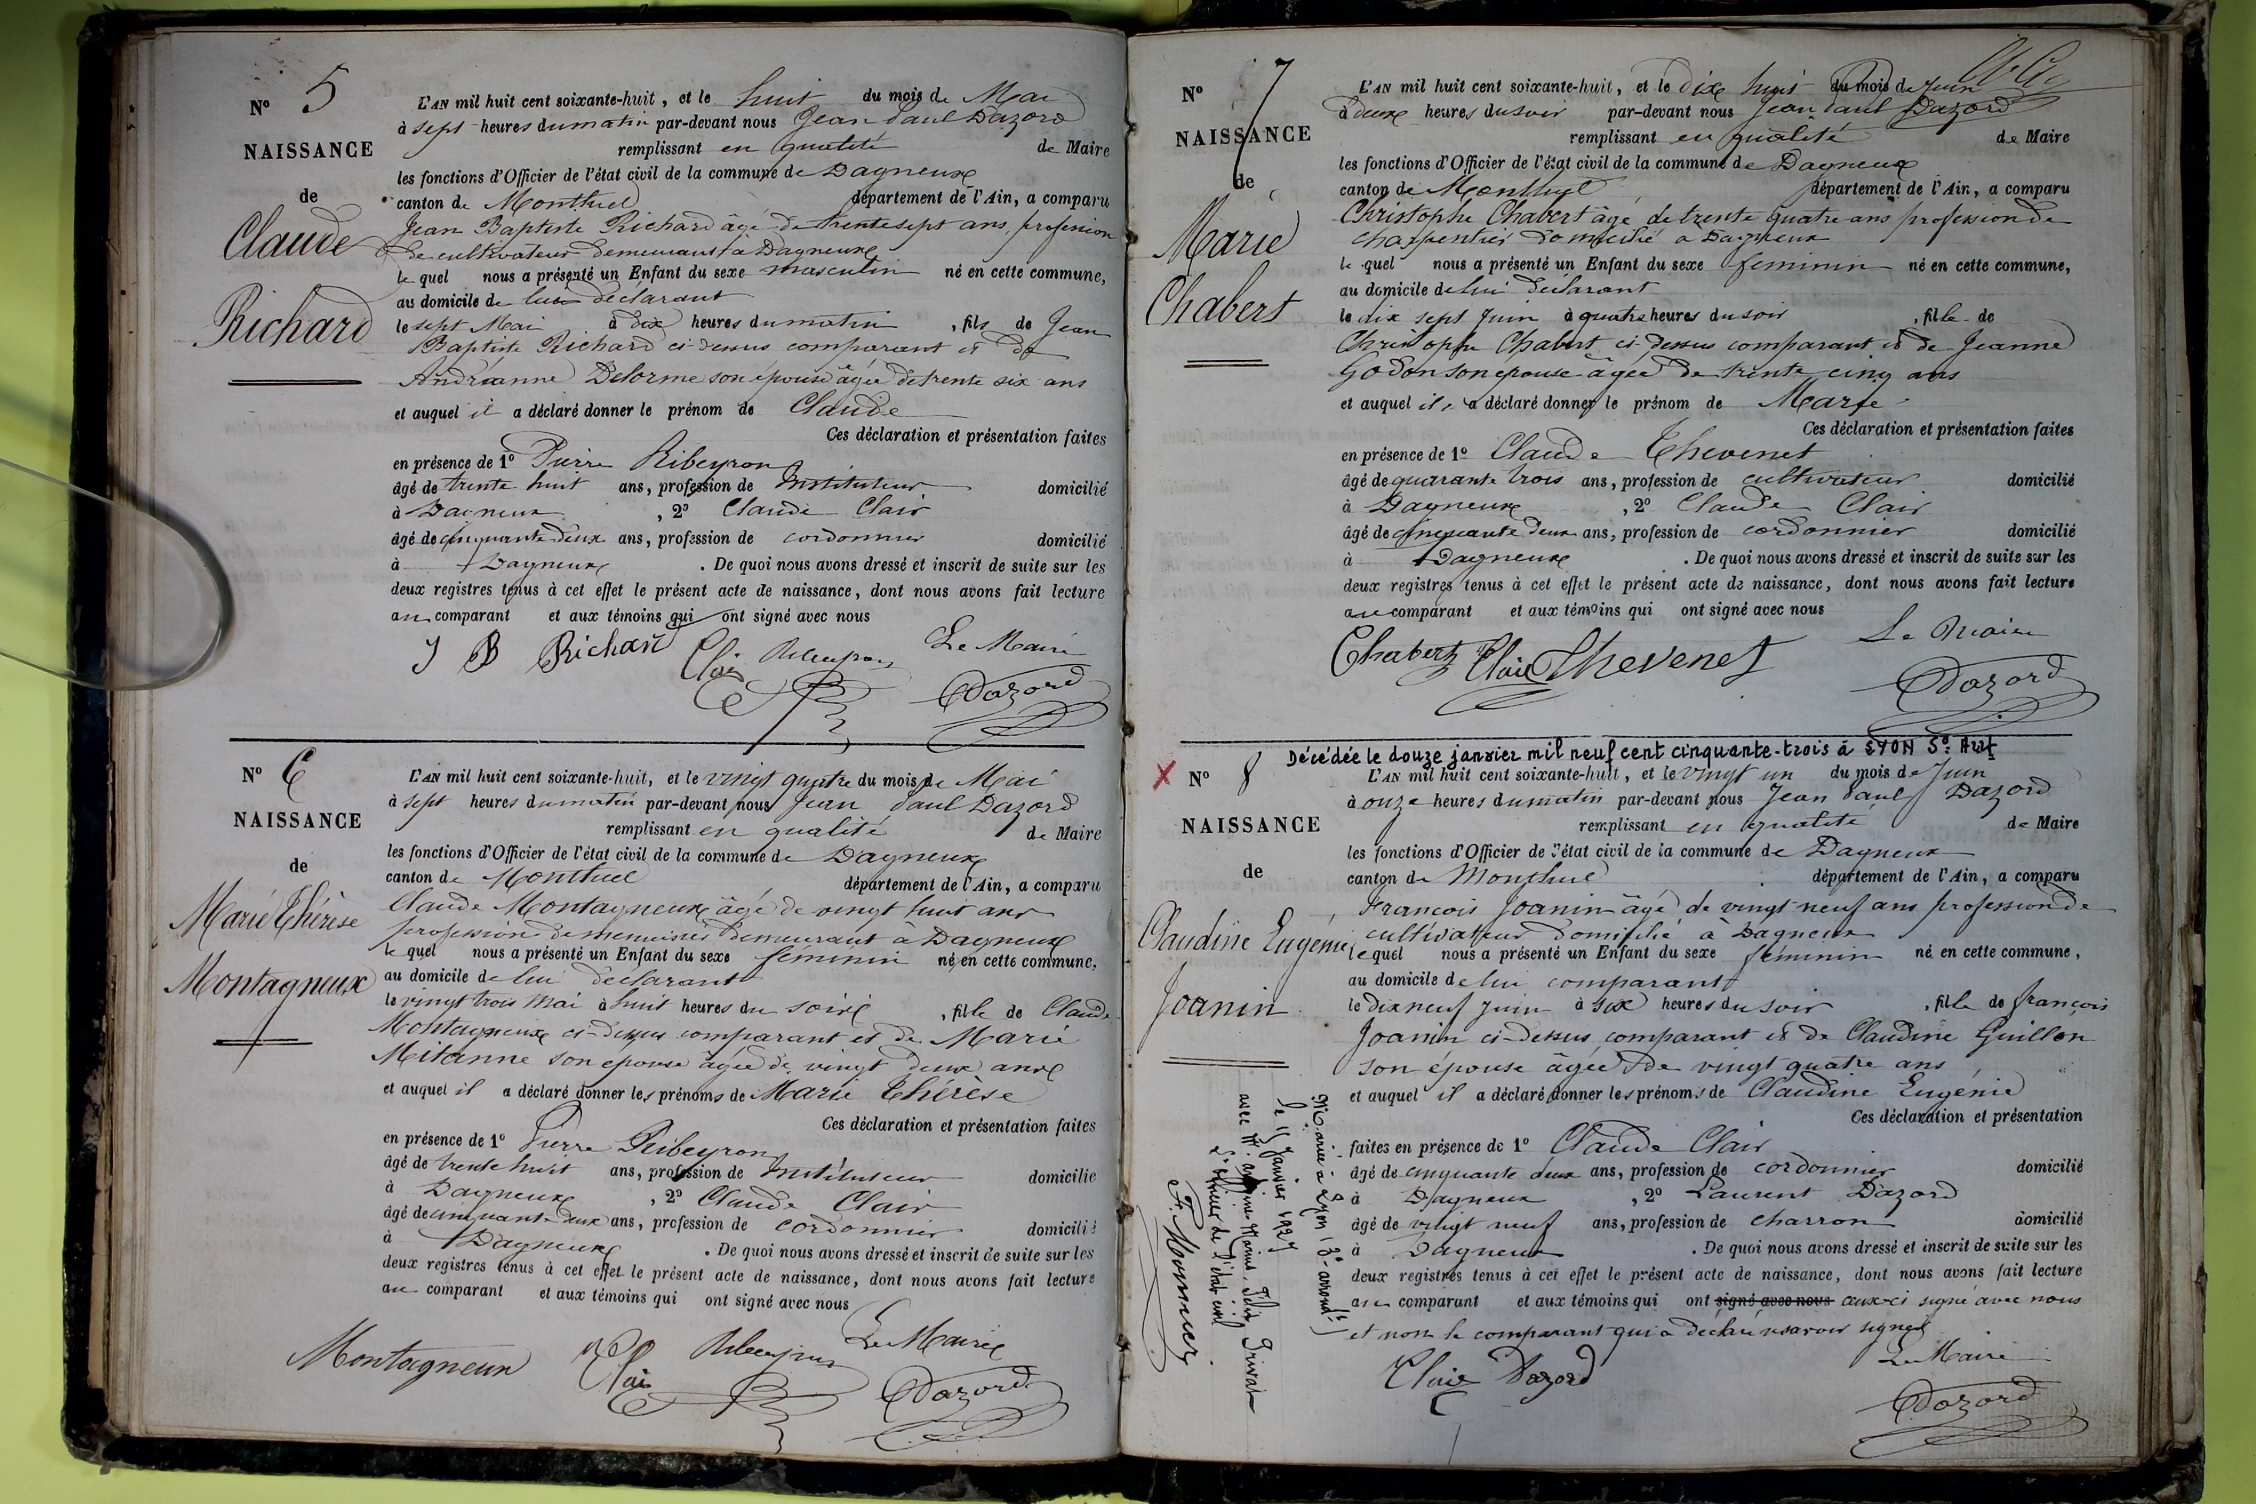 N° 5
NAISSANCE
de
Claude
Richard
L'AN mil huit cent soixante-huit, et le huit du mois de Mai
à sept heures du matin par-devant nous Jean Paul Dazord
remplissant en qualité de Maire
les fonctions d'Officier de l'état civil de la commune de Dagneux
canton de Montluel département de l'Ain, a comparu
Jean Baptiste Richard âgé de trente sept ans, profession
de cultivateur demeurant à Dagneux
le quel nous a présenté un Enfant du sexe masculin né en cette commune,
au domicile de lui déclarant
le sept Mai à dix heures du matin, fils de Jean
Baptiste Richard ci-dessus comparant et de
Andréanne Delorme son épouse âgée de trente six ans
et auquel il a déclaré donner le prénom de Claude
Ces déclaration et présentation faites
en présence de 1° Pierre Ribeyron
âgé de trente huit ans, profession de Instituteur domicilié
à Dagneux, 2° Claude Clair
âgé de cinquante deux ans, profession de cordonnier domicilié
à Dagneux. De quoi nous avons dressé et inscrit de suite sur les
deux registres tenus à cet effet le présent acte de naissance, dont nous avons fait lecture
au comparant et aux témoins qui ont signé avec nous
J B Richard Clair Ribeyron Le Maire
Dazord
N° 6
NAISSANCE
de
Marie Thérèse
Montagneux
L'AN mil huit cent soixante-huit, et le vingt quatre du mois de Mai
à sept heures du matin par-devant nous Jean Paul Dazord
remplissant en qualité de Maire
les fonctions d'Officier de l'état civil de la commune de Dagneux
canton de Montluel département de l'Ain, a comparu
Claude Montagneux âgé de vingt huit ans
profession de menuisier demeurant à Dagneux
le quel nous a présenté un Enfant du sexe féminin né en cette commune,
au domicile de lui déclarant
le vingt trois Mai à huit heures du soir, fille de Claude
Montagneux ci-dessus comparant et de Marie
Mitanne son épouse âgée de vingt deux ans
et auquel il a déclaré donner les prénoms de Marie Thérèse
Ces déclaration et présentation faites
en présence de 1° Pierre Ribeyron
âgé de trente huit ans, profession de Instituteur domicilié
à Dagneux, 2° Claude Clair
âgé de cinquante deux ans, profession de cordonnier domicilié
à Dagneux. De quoi nous avons dressé et inscrit de suite sur les
deux registres tenus à cet effet le présent acte de naissance, dont nous avons fait lecture
au comparant et aux témoins qui ont signé avec nous
Montagneux Clair Ribeyron Le Maire
Dazord
N° 7
NAISSANCE
de
Marie
Chabert
L'AN mil huit cent soixante-huit, et le dix huit du mois de Juin
à deux heures du soir par-devant nous Jean Paul Dazord
remplissant en qualité de Maire
les fonctions d'Officier de l'état civil de la commune de Dagneux
canton de Montluel département de l'Ain, a comparu
Christophe Chabert âgé de trente quatre ans profession de
charpentier domicilié à Dagneux
le quel nous a présenté un Enfant du sexe féminin né en cette commune,
au domicile de lui déclarant
le dix sept Juin à quatre heures du soir, fille de
Christophe Chabert ci-dessus comparant et de Jeanne
Godon son épouse âgée de trente cinq ans
et auquel il a déclaré donner le prénom de Marie
Ces déclaration et présentation faites
en présence de 1° Claude Thevenet
âgé de quarante trois ans, profession de cultivateur domicilié
à Dagneux, 2° Claude Clair
âgé de cinquante deux ans, profession de cordonnier domicilié
à Dagneux. De quoi nous avons dressé et inscrit de suite sur les
deux registres tenus à cet effet le présent acte de naissance, dont nous avons fait lecture
au comparant et aux témoins qui ont signé avec nous
Chabert Clair Thevenet Le Maire
Dazord
Décédée le douze janvier mil neuf cent cinquante-trois à LYON 5e Arrt
N° 8
NAISSANCE
de
Claudine Eugénie
Joanin
L'AN mil huit cent soixante-huit, et le vingt un du mois de Juin
à onze heures du matin par-devant nous Jean Paul Dazord
remplissant en qualité de Maire
les fonctions d'Officier de l'état civil de la commune de Dagneux
canton de Montluel département de l'Ain, a comparu
François Joanin âgé de vingt neuf ans profession de
cultivateur domicilié à Dagneux
le quel nous a présenté un Enfant du sexe féminin né en cette commune,
au domicile de lui comparant
le dix neuf Juin à six heures du soir, fille de françois
Joanin ci-dessus comparant et de Claudine Guillon
son épouse âgée de vingt quatre ans
et auquel il a déclaré donner les prénoms de Claudine Eugénie
Ces déclaration et présentation
faites en présence de 1° Claude Clair
âgé de cinquante deux ans, profession de cordonnier domicilié
à Dagneux, 2° Laurent Dazord
âgé de vingt neuf ans, profession de charron domicilié
à Dagneux. De quoi nous avons dressé et inscrit de suite sur les
deux registres tenus à cet effet le présent acte de naissance, dont nous avons fait lecture
au comparant et aux témoins qui ont signé avec nous ceux-ci signé avec nous
et non le comparant qui a déclaré ne savoir signer
Clair Dazord Le Maire
Dazord
Mariée à Lyon (3e arrondt)
le 15 Janvier 1927
avec Mr Marius, Félix Privat
L'officier de l'état civil
F. Monnier